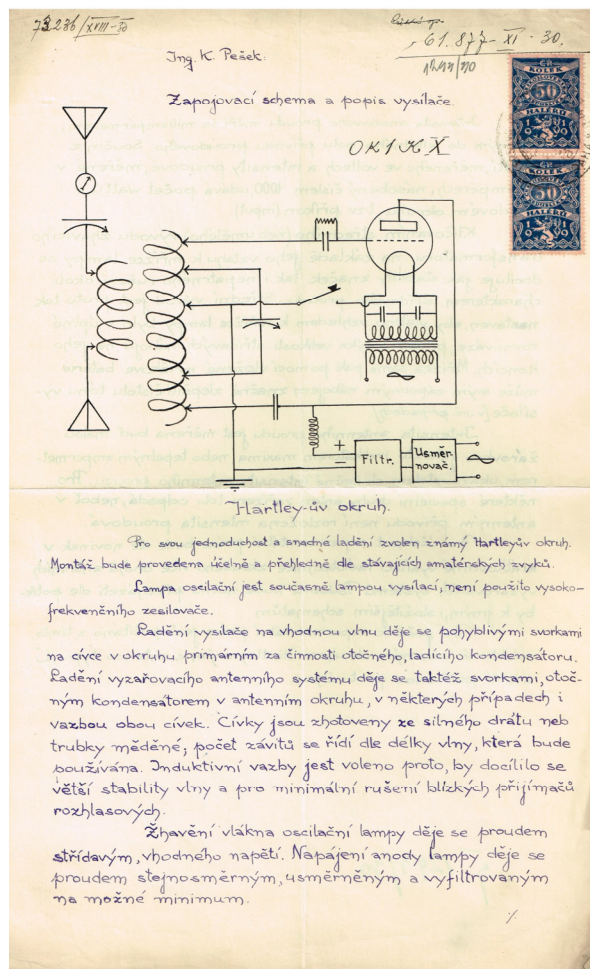 73236/XVIII-30
61.877-XI-30.
1299/30
Ing. K. Pešek.
Zapojovací schema a popis vysílače.
OK1KX
KOLEK
50
HALÉŘŮ
1919
KOLEK
50
HALÉŘŮ
1919
Filtr.
Usměr-
novač.
Hartley-ův okruh.
Pro svou jednoduchost a snadné ladění zvolen známý Hartleyův okruh.
Montáž bude provedena účelně a přehledně dle stávajících amatérských zvyků.
Lampa oscilační jest současně lampou vysílací, není použito vysoko-
frekvenčního zesilovače.
Ladění vysílače na vhodnou vlnu děje se pohyblivými svorkami
na cívce v okruhu primárním za činnosti otočného, ladícího kondensátoru.
Ladění vyzařovacího antenního systému děje se taktéž svorkami, otoč-
ným kondensátorem v antenním okruhu, v některých případech i
vazbou obou cívek. Cívky jsou zhotoveny ze silného drátu neb
trubky měděné; počet závitů se řídí dle délky vlny, která bude
používána. Induktivní vazby jest voleno proto, by docílilo se
větší stability vlny a pro minimální rušení blízkých přijímačů
rozhlasových.
Žhavění vlákna oscilační lampy děje se proudem
střídavým, vhodného napětí. Napájení anody lampy děje se
proudem stejnosměrným, usměrněným a vyfiltrovaným
na možné minimum.